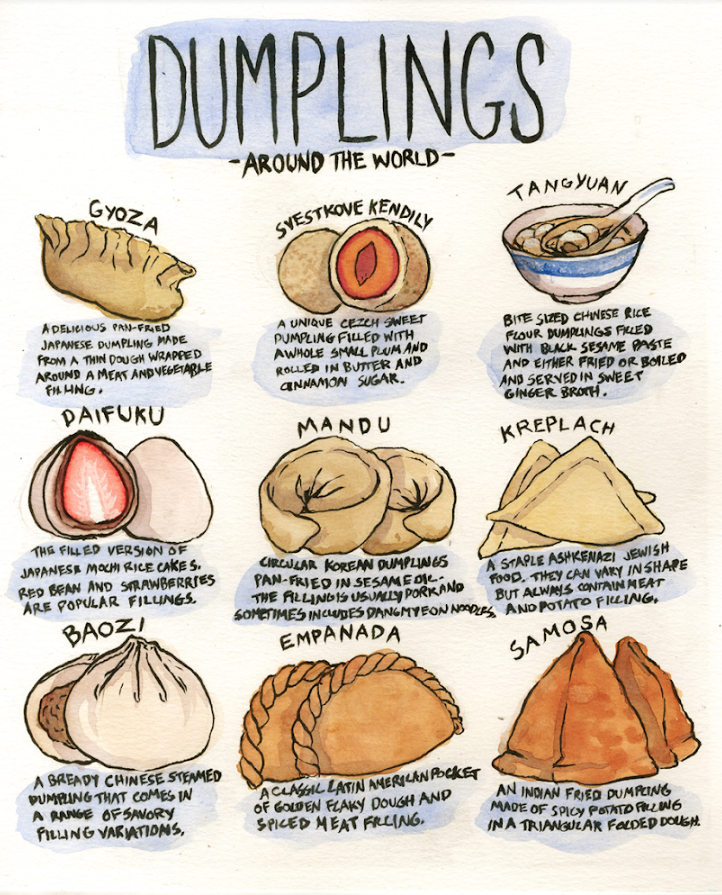 DUMPLINGS
-AROUND THE WORLD-
GYOZA
A DELICIOUS PAN-FRIED
JAPANESE DUMPLING MADE
FROM A THIN DOUGH WRAPPED
AROUND A MEAT AND VEGETABLE
FILLING.
SVESTKOVE KENDILY
A UNIQUE CEZCH SWEET
DUMPLING FILLED WITH
A WHOLE SMALL PLUM AND
ROLLED IN BUTTER AND
CINNAMON SUGAR.
TANGYUAN
BITE SIZED CHINESE RICE
FLOUR DUMPLINGS FILLED
WITH BLACK SESAME PASTE
AND EITHER FRIED OR BOILED
AND SERVED IN SWEET
GINGER BROTH.
DAIFUKU
THE FILLED VERSION OF
JAPANESE MOCHI RICE CAKES.
RED BEAN AND STRAWBERRIES
ARE POPULAR FILLINGS.
MANDU
CIRCULAR KOREAN DUMPLINGS
PAN-FRIED IN SESAME OIL.
THE FILLING IS USUALLY PORK AND
SOMETIMES INCLUDES DANGMYEON NOODLES.
KREPLACH
A STAPLE ASHKENAZI JEWISH
FOOD. THEY CAN VARY IN SHAPE
BUT ALWAYS CONTAIN MEAT
AND POTATO FILLING.
BAOZI
A BREADY CHINESE STEAMED
DUMPLING THAT COMES IN
A RANGE OF SAVORY
FILLING VARIATIONS.
EMPANADA
A CLASSIC LATIN AMERICAN POCKET
OF GOLDEN FLAKY DOUGH AND
SPICED MEAT FILLING.
SAMOSA
AN INDIAN FRIED DUMPLING
MADE OF SPICY POTATO FILLING
IN A TRIANGULAR FOLDED DOUGH.